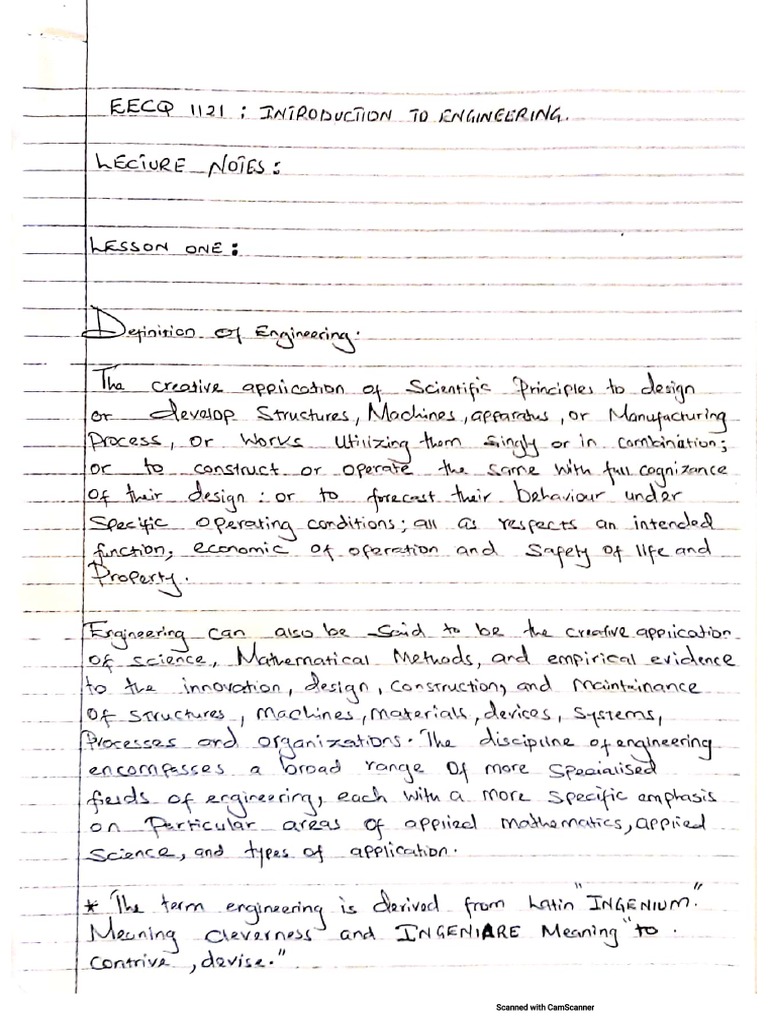 EECQ 1121 : INTRODUCTION TO ENGINEERING.
LECTURE NOTES:
LESSON ONE:
Definition of Engineering.
The creative application of Scientific Principles to design
or develop Structures, Machines, apparatus, or Manufacturing
Process, or works utilizing them singly or in combination;
or to construct or operate the same with full cognizance
of their design : or to forecast their behaviour under
Specific operating conditions; all as respects an intended
function, economic of operation and Safety of life and
Property.
Engineering can also be said to be the creative application
of science, Mathematical Methods, and empirical evidence
to the innovation, design, construction, and maintainance
of structures, machines, materials, devices, systems,
Processes and organizations. The discipline of engineering
encompasses a broad range of more specialised
fields of engineering, each with a more specific emphasis
on Particular areas of applied mathematics, applied
Science, and types of application.
* The term engineering is derived from Latin "INGENIUM."
Meaning cleverness and INGENIARE Meaning "to
contrive, devise."
Scanned with CamScanner